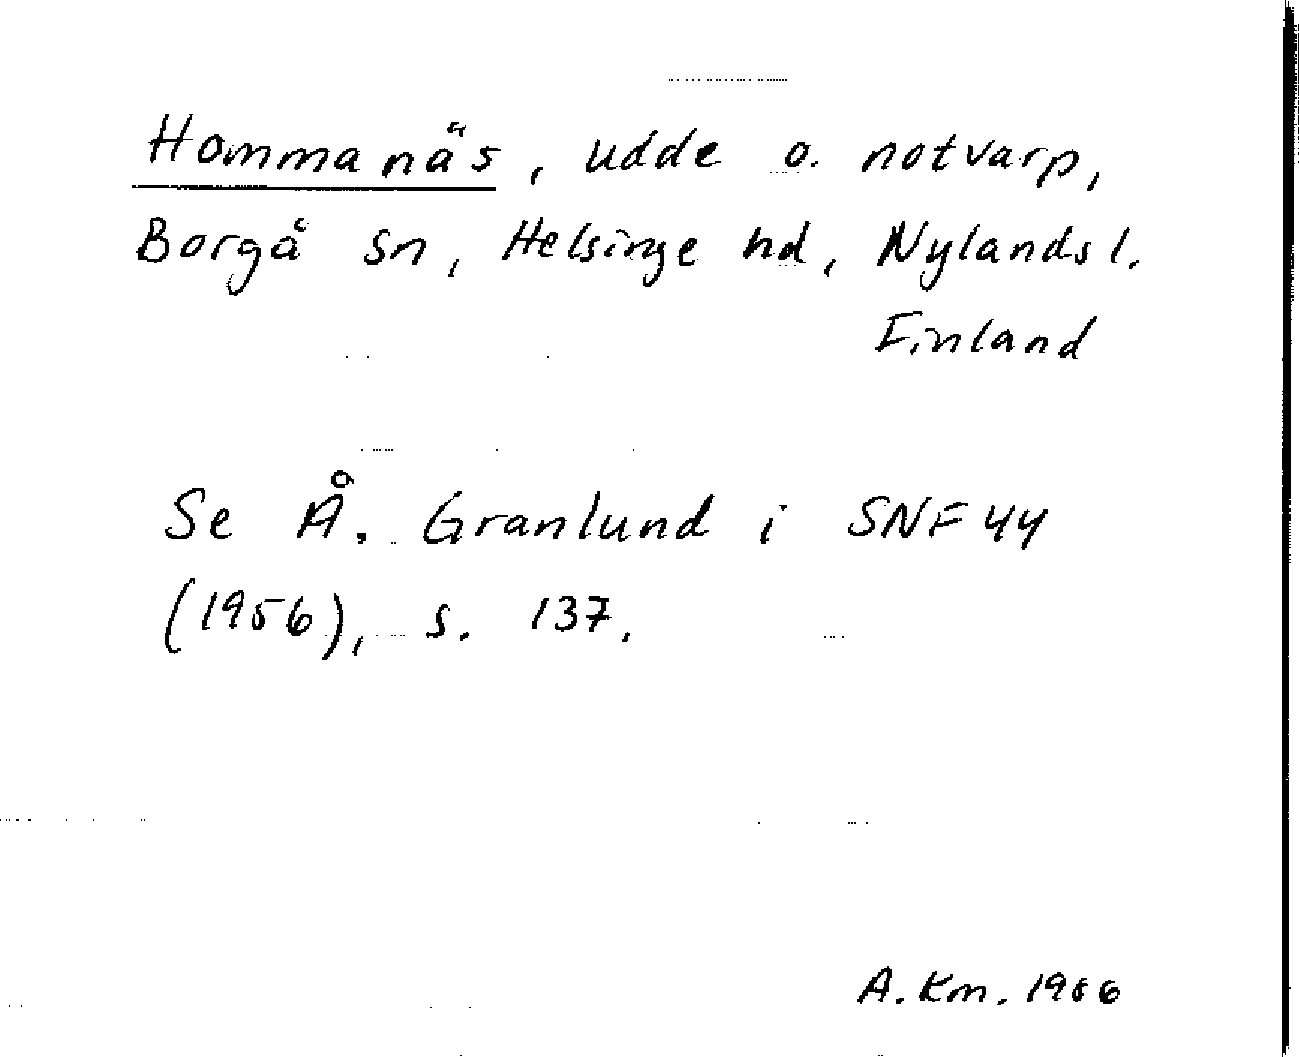 Hommanäs, udde o. notvarp,
Borgå sn, Helsinge hd, Nylands l.
Finland
Se Å. Granlund i SNF 44
(1956), s. 137.
A. Km. 1966